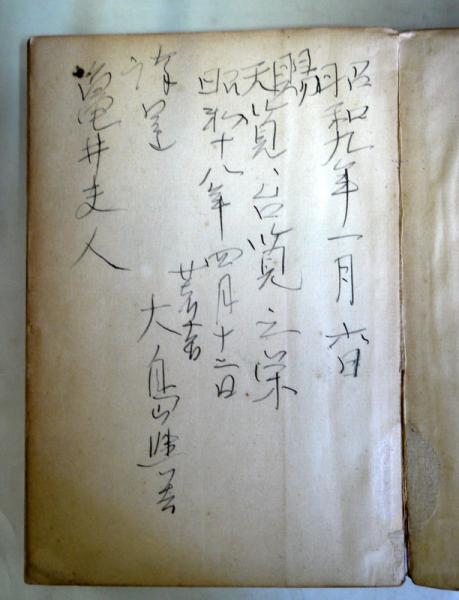 昭和九年一月六日
賜天覧、台覧之栄
昭和十八年四月十二日
著者
大島
謹呈
亀井夫人